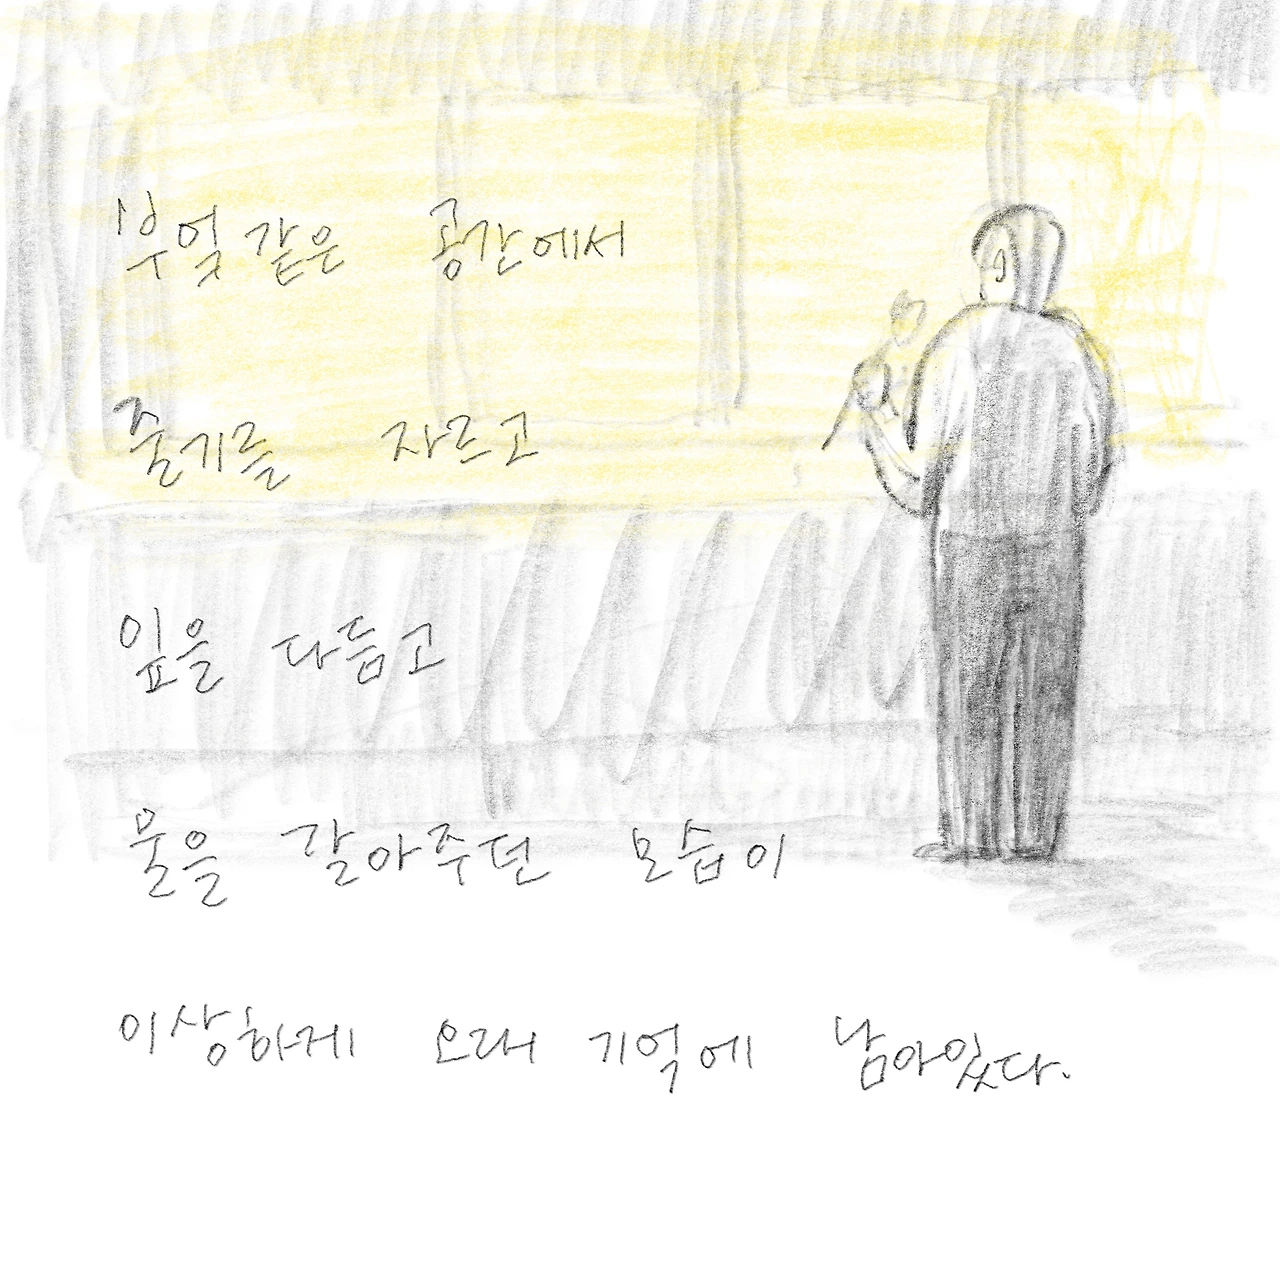 부엌같은 공간에서
줄기를 자르고
잎을 다듬고
물을 갈아주던 모습이
이상하게 오래 기억에 남아있다.